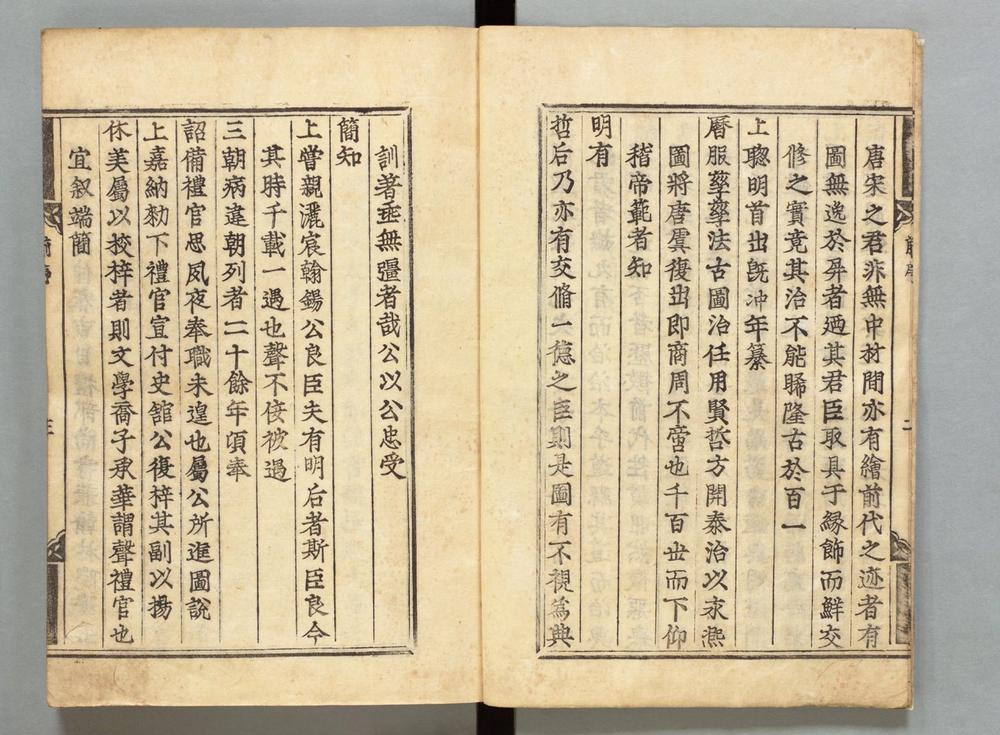 唐宋之君非無中材間亦有繪前代之迹者有
圖無逸於屏者廼其君臣取具于緣飾而鮮交
修之實竟其治不能睎隆古於百一
上聦明首出旣冲年纂
曆服孳孳法古圖治任用賢哲方開泰治以求燕
圖將唐虞復出即商周不啻也千百丗而下仰
稽帝範者知
明有
哲后乃亦有交脩一德之臣則是圖有不視爲典
訓著垂無彊者哉公以公忠受
簡知
上嘗親灑宸翰錫公良臣夫有明后者斯臣良今
其時千載一遇也聲不佞被遇
三朝病違朝列者二十餘年頃奉
詔備禮官思夙夜奉職未遑也屬公所進圖說
上嘉納勑下禮官宣付史舘公復梓其副以揚
休美屬以挍梓者則文學喬子承華謂聲禮官也
宜叙端簡
二
三